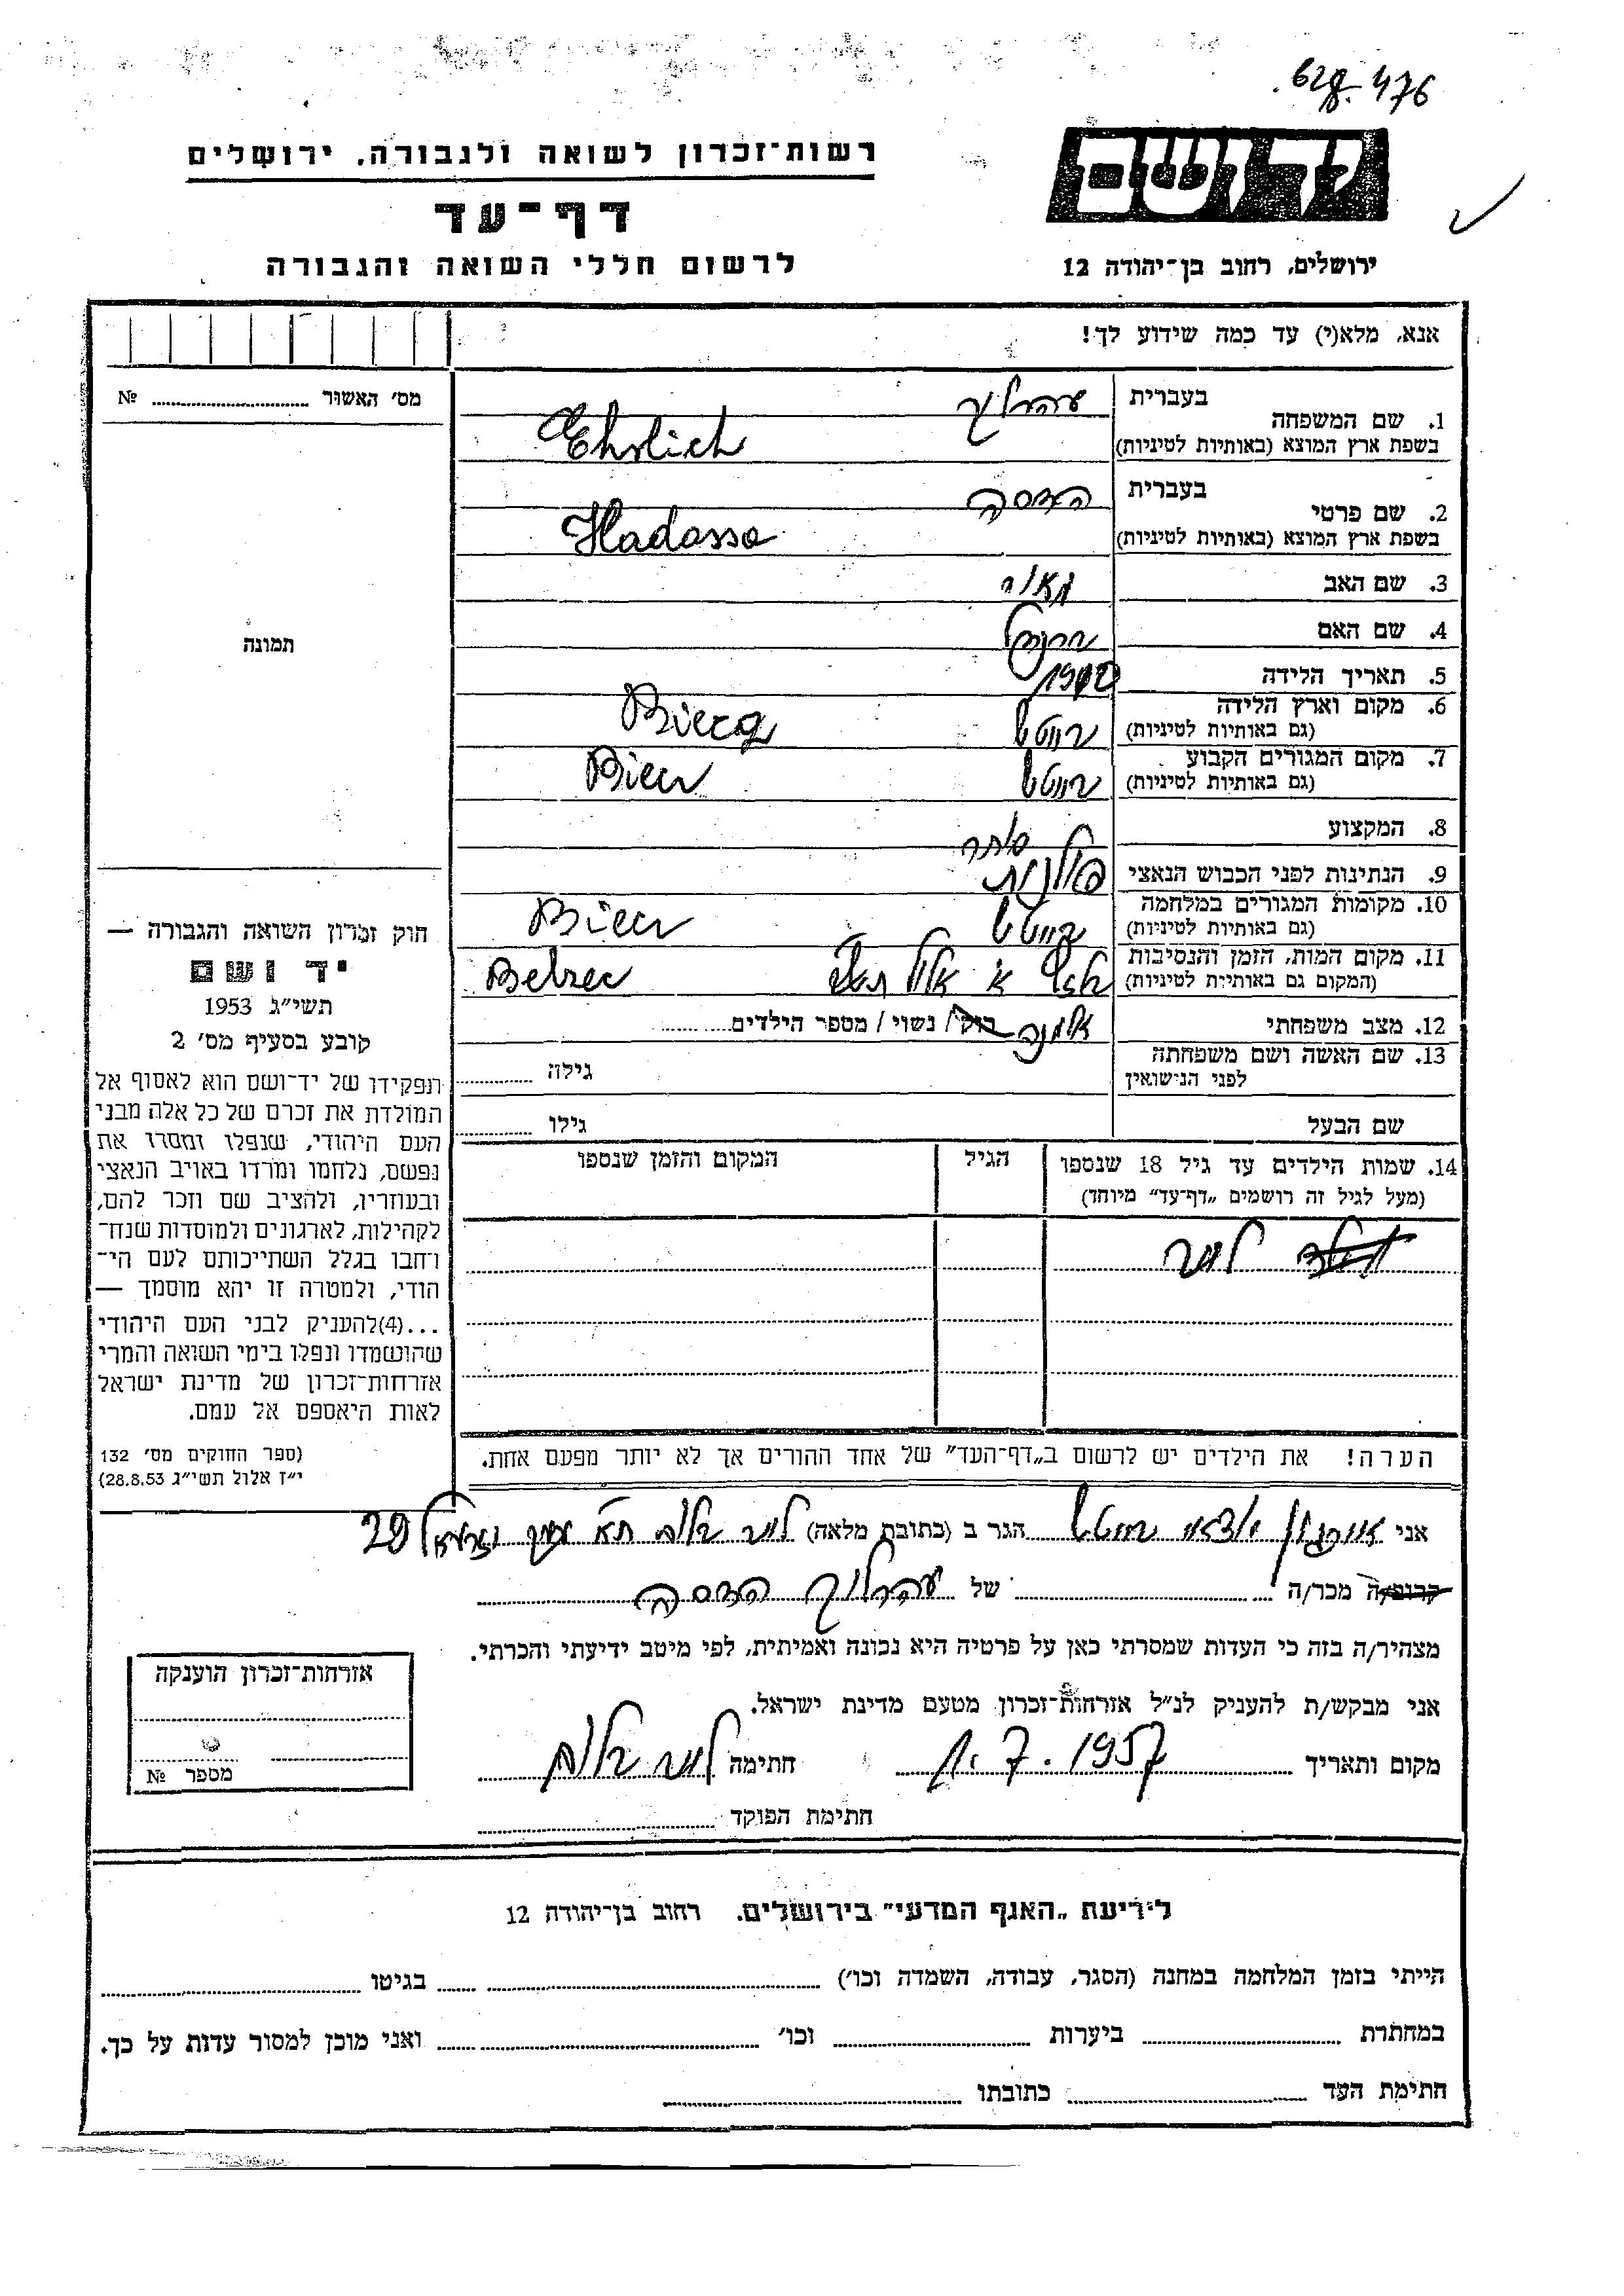 476
רשות־זכרון לשואה ולגבורה, ירושלים
יד ושם
דף־עד
לרשום חללי השואה והגבורה
ירושלים, רחוב בן־יהודה 12
אנא, מלא(י) עד כמה שידוע לך!
מס׳ האשור ........ №
1. שם המשפחה
בעברית עהרליך
בשפת ארץ המוצא (באותיות לטיניות) Ehrlich
2. שם פרטי
בעברית הדסה
בשפת ארץ המוצא (באותיות לטיניות) Hadassa
3. שם האב מאיר
4. שם האם
5. תאריך הלידה
6. מקום וארץ הלידה
(גם באותיות לטיניות) Biecz
7. מקום המגורים הקבוע
(גם באותיות לטיניות) Biecz
8. המקצוע סוחר
9. הנתינות לפני הכבוש הנאצי פולנית
10. מקומות המגורים במלחמה
(גם באותיות לטיניות) Biecz
11. מקום המות, הזמן והנסיבות
(המקום גם באותיות לטיניות) א׳ אלול Belzec
12. מצב משפחתי רוק / נשוי / מספר הילדים ........ אלמנה
13. שם האשה ושם משפחתה
לפני הנישואין
גילה ........
שם הבעל
גילו ........
14. שמות הילדים עד גיל 18 שנספו
(מעל לגיל זה רושמים „דף־עד” מיוחד)
הגיל
המקום והזמן שנספו
הערה! את הילדים יש לרשום ב„דף־העד” של אחד ההורים אך לא יותר מפעם אחת.
תמונה
חוק זכרון השואה והגבורה —
יד ושם
תשי״ג 1953
קובע בסעיף מס׳ 2
תפקידו של יד־ושם הוא לאסוף אל
המולדת את זכרם של כל אלה מבני
העם היהודי, שנפלו ומסרו את
נפשם, נלחמו ומרדו באויב הנאצי
ובעוזריו, ולהציב שם וזכר להם,
לקהילות, לארגונים ולמוסדות שנח־
רחבו בגלל השתייכותם לעם הי־
הודי, ולמטרה זו יהא מוסמך —
...(4)להעניק לבני העם היהודי
שהושמדו ונפלו בימי השואה והמרי
אזרחות־זכרון של מדינת ישראל
לאות היאספם אל עמם.
(ספר החוקים מס׳ 132
י״ז אלול תשי״ג 28.8.53)
אני ארגון יוצאי הגר ב (כתובת מלאה) 29
קרוב/ה מכר/ה ........ של עהרליך הדסה
מצהיר/ה בזה כי העדות שמסרתי כאן על פרטיה היא נכונה ואמיתית, לפי מיטב ידיעתי והכרתי.
אני מבקש/ת להעניק לנ״ל אזרחות־זכרון מטעם מדינת ישראל.
מקום ותאריך 7.1957 חתימה
חתימת הפוקד ........
אזרחות־זכרון הוענקה
מספר №
לידיעת „האגף המדעי” בירושלים. רחוב בן־יהודה 12
הייתי בזמן המלחמה במחנה (הסגר, עבודה, השמדה וכו׳) ........ בגיטו ........
במחתרת ........ ביערות ........ וכו׳ ........ ואני מוכן למסור עדות על כך.
חתימת העד ........ כתובתו ........